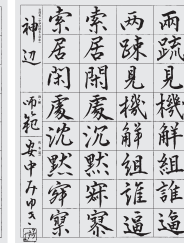 兩疏見機解組誰逼
両踈見機解組誰逼
索居閑處沈默寂寥
索居閑處沈默寂寥
神辺 師範 安中みゆき